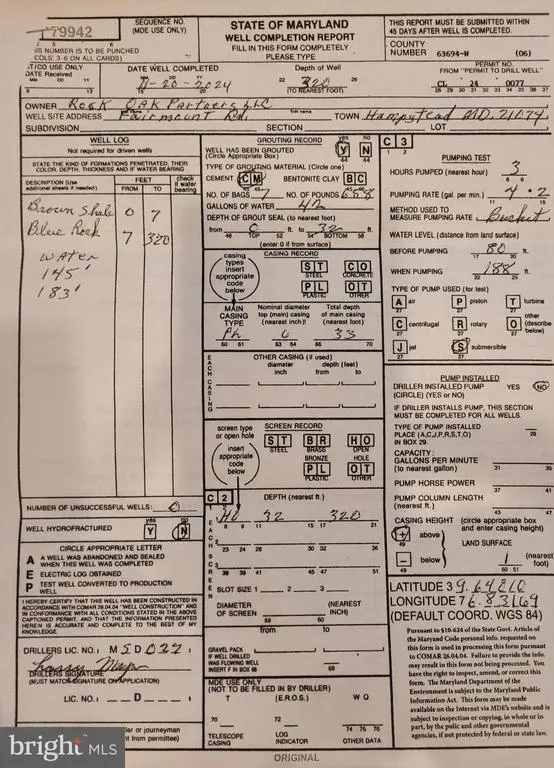 179942
SEQUENCE NO.
(MDE USE ONLY)
STATE OF MARYLAND
WELL COMPLETION REPORT
FILL IN THIS FORM COMPLETELY
PLEASE TYPE
THIS REPORT MUST BE SUBMITTED WITHIN
45 DAYS AFTER WELL IS COMPLETED.
COUNTY
NUMBER 63694-W (06)
IS NUMBER IS TO BE PUNCHED
COLS. 3-6 ON ALL CARDS)
ST/CO USE ONLY
DATE Received
DATE WELL COMPLETED
11-20-2024
Depth of Well
320
(TO NEAREST FOOT)
PERMIT NO.
FROM "PERMIT TO DRILL WELL"
CL - 24 - 0077
OWNER Rock OAK Partners LLC
WELL SITE ADDRESS Fairmount Rd. TOWN Hampstead MD. 21074
SUBDIVISION SECTION LOT
WELL LOG
Not required for driven wells
STATE THE KIND OF FORMATIONS PENETRATED, THEIR
COLOR, DEPTH, THICKNESS AND IF WATER BEARING
DESCRIPTION (Use
additional sheets if needed)
FEET
FROM TO
check
if water
bearing
Brown Shale 0 7
Blue Rock 7 320
WATER
145'
183'
NUMBER OF UNSUCCESSFUL WELLS: 0
WELL HYDROFRACTURED
yes no
Y N
CIRCLE APPROPRIATE LETTER
A A WELL WAS ABANDONED AND SEALED
WHEN THIS WELL WAS COMPLETED
E ELECTRIC LOG OBTAINED
P TEST WELL CONVERTED TO PRODUCTION
WELL
I HEREBY CERTIFY THAT THIS WELL HAS BEEN CONSTRUCTED IN
ACCORDANCE WITH COMAR 26.04.04 "WELL CONSTRUCTION" AND
IN CONFORMANCE WITH ALL CONDITIONS STATED IN THE ABOVE
CAPTIONED PERMIT, AND THAT THE INFORMATION PRESENTED
HEREIN IS ACCURATE AND COMPLETE TO THE BEST OF MY
KNOWLEDGE.
DRILLERS LIC. NO. M S D 022
DRILLERS SIGNATURE
(MUST MATCH SIGNATURE ON APPLICATION)
LIC. NO. D
ler or journeyman
nt from permittee)
GROUTING RECORD
yes no
WELL HAS BEEN GROUTED
(Circle Appropriate Box)
Y N
44 44
TYPE OF GROUTING MATERIAL (Circle one)
CEMENT CM BENTONITE CLAY BC
NO. OF BAGS 7 NO. OF POUNDS 658
GALLONS OF WATER 42
DEPTH OF GROUT SEAL (to nearest foot)
from 0 ft. to 32 ft.
48 TOP 52 54 BOTTOM 58
(enter 0 if from surface)
CASING RECORD
casing
types
insert
appropriate
code
below
ST STEEL
CO CONCRETE
PL PLASTIC
OT OTHER
MAIN
CASING
TYPE
Nominal diameter
top (main) casing
(nearest inch)!
Total depth
of main casing
(nearest foot)
PL 6 33
60 61 63 64 66 70
EACH CASING
OTHER CASING (if used)
diameter
inch
depth (feet)
from to
SCREEN RECORD
screen type
or open hole
insert
appropriate
code
below
ST STEEL
BR BRASS BRONZE
HO OPEN HOLE
PL PLASTIC
OT OTHER
C 2
DEPTH (nearest ft.)
EACH SCREEN
HO 32 320
8 9 11 15 17 21
23 24 26 30 32 36
38 39 41 45 47 51
SLOT SIZE 1 2 3
DIAMETER
OF SCREEN
(NEAREST
INCH)
56 60
from to
GRAVEL PACK
IF WELL DRILLED
WAS FLOWING WELL
INSERT F IN BOX 68
68
MDE USE ONLY
(NOT TO BE FILLED IN BY DRILLER)
T (E.R.O.S.) W Q
70 72
74 75 76
TELESCOPE
CASING
LOG
INDICATOR
OTHER DATA
C 3
1 2
PUMPING TEST
HOURS PUMPED (nearest hour) 3
8 9
PUMPING RATE (gal. per min.) 4.2
11 15
METHOD USED TO
MEASURE PUMPING RATE Bucket
WATER LEVEL (distance from land surface)
BEFORE PUMPING 80 ft.
17 20
WHEN PUMPING 188 ft.
22 25
TYPE OF PUMP USED (for test)
A air P piston T turbine
C centrifugal R rotary O other
(describe
below)
J jet S submersible
27 27
PUMP INSTALLED
DRILLER INSTALLED PUMP YES NO
(CIRCLE) (YES or NO)
IF DRILLER INSTALLS PUMP, THIS SECTION
MUST BE COMPLETED FOR ALL WELLS.
TYPE OF PUMP INSTALLED
PLACE (A,C,J,P,R,S,T,O)
IN BOX 29.
29
CAPACITY:
GALLONS PER MINUTE
(to nearest gallon)
31 35
PUMP HORSE POWER
37 41
PUMP COLUMN LENGTH
(nearest ft.)
43 47
CASING HEIGHT (circle appropriate box
and enter casing height)
+ above
49
LAND SURFACE
- below
49
1 (nearest
foot)
50 51
LATITUDE 39.64810
LONGITUDE 76.83169
(DEFAULT COORD. WGS 84)
Pursuant to §10-624 of the State Govt. Article of
the Maryland Code personal info. requested on
this form is used in processing this form pursuant
to COMAR 26.04.04. Failure to provide the info.
may result in this form not being processed. You
have the right to inspect, amend, or correct this
form. The Maryland Department of the
Environment is subject to the Maryland Public
Information Act. This form may be made
available on the Internet via MDE's website and is
subject to inspection or copying, in whole or in
part, by the pulic and other governmental
agencies, if not protected by federal or state law.
ORIGINAL
bright MLS